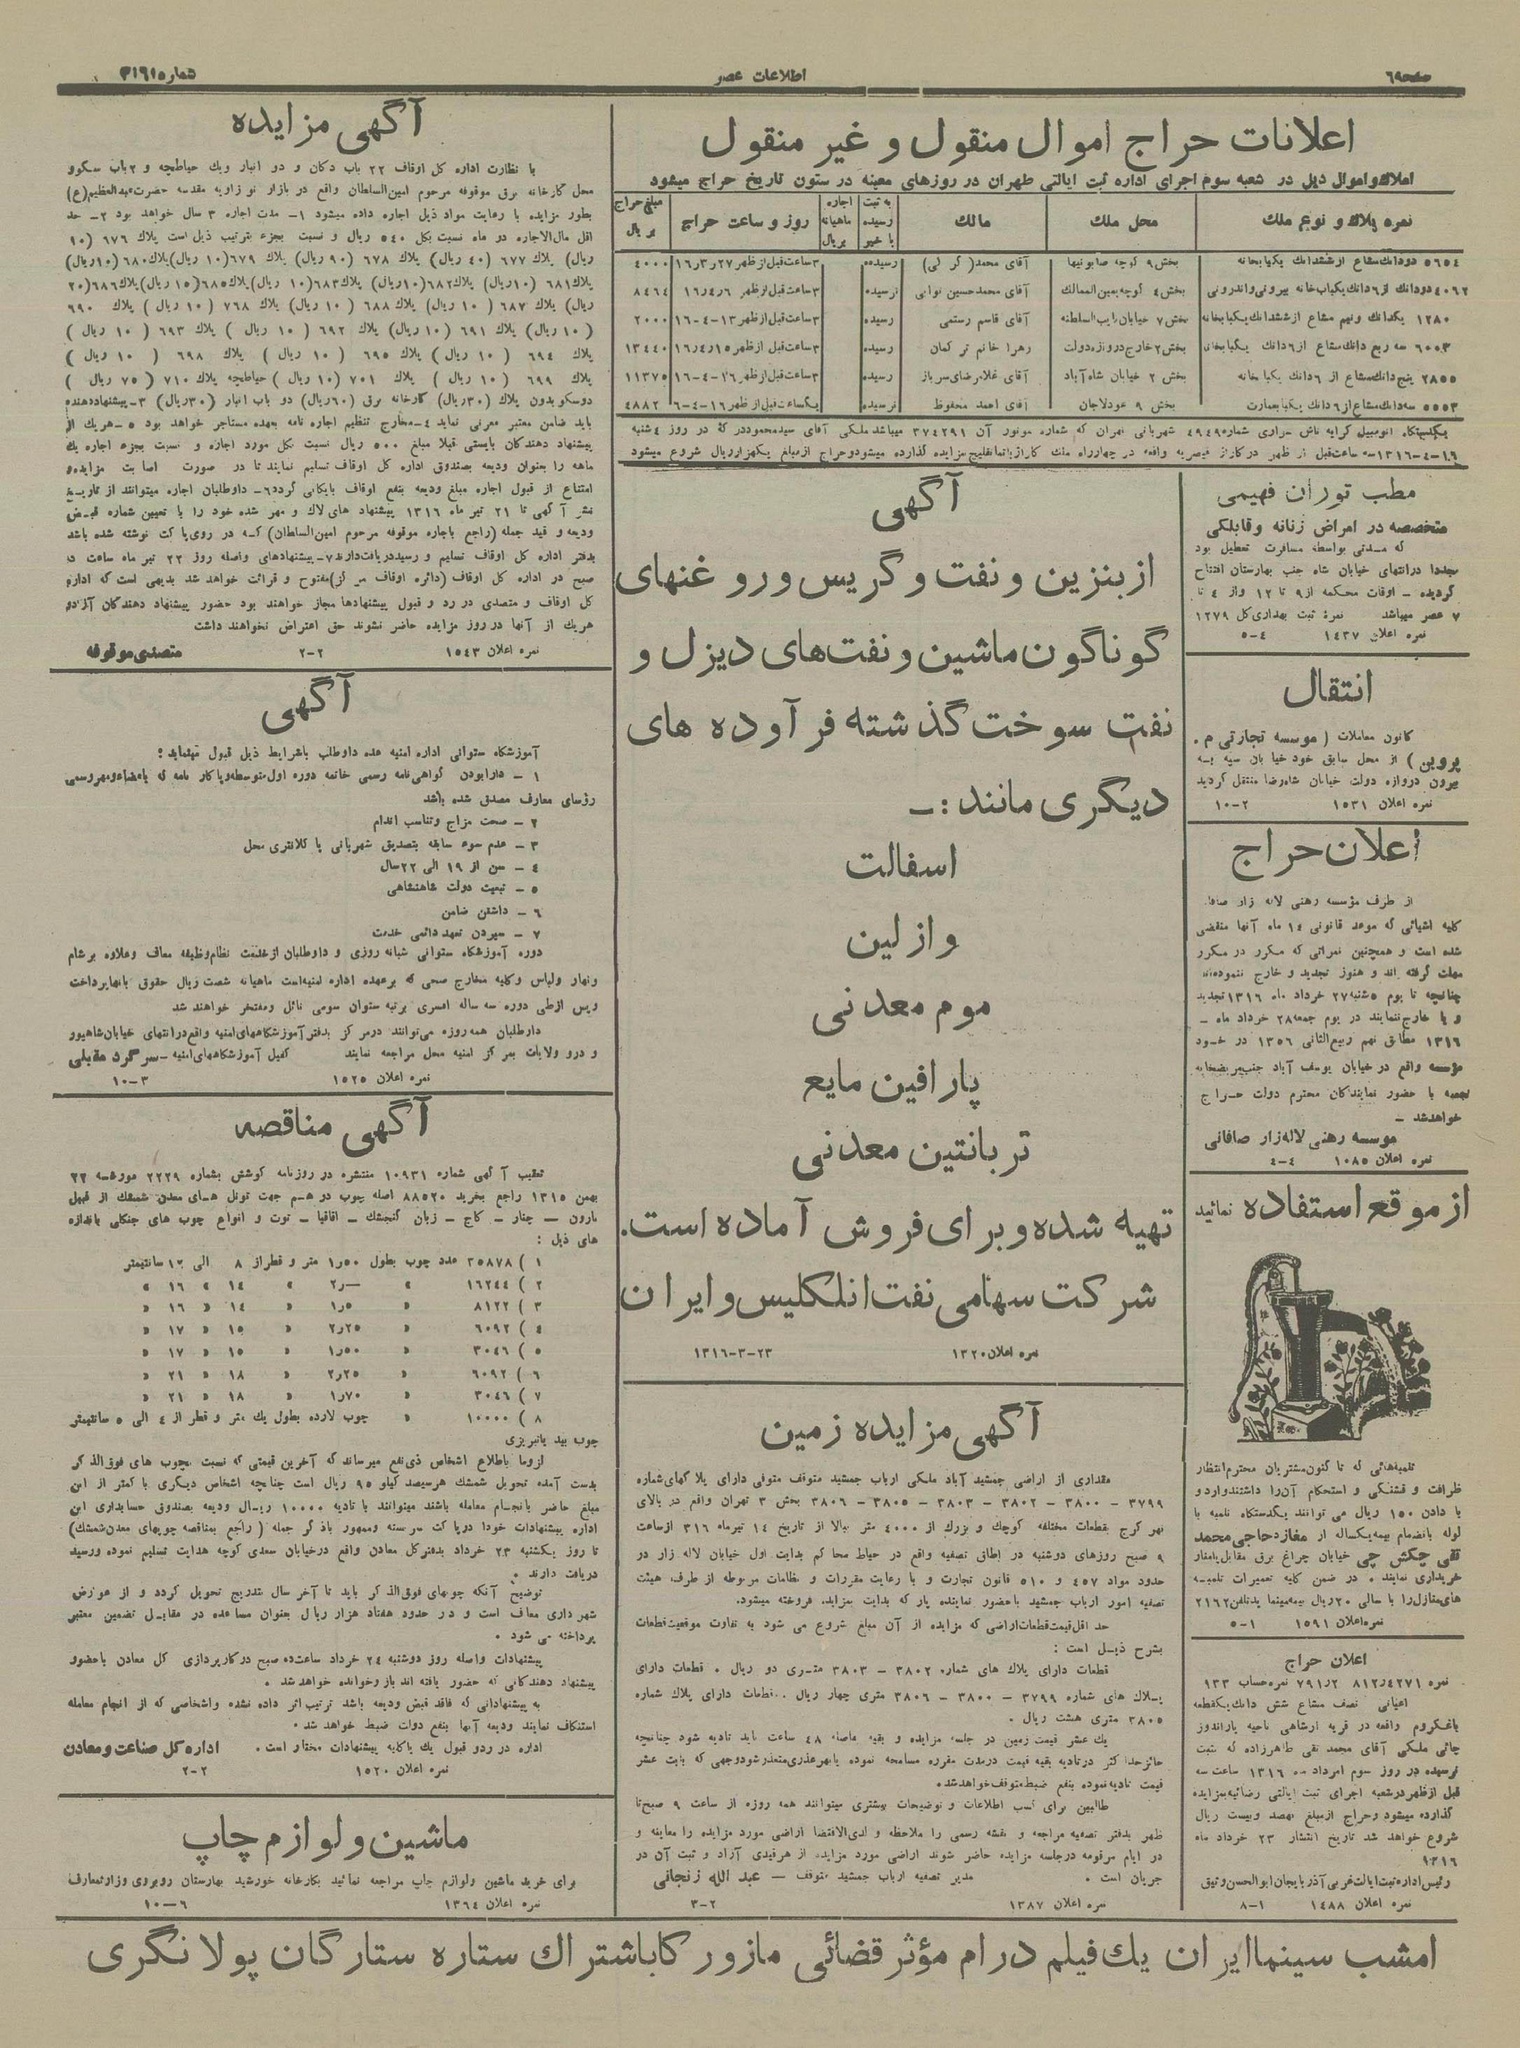 صفحه ۶۹
اطلاعات عصر
شماره ۳۱۶۱
اعلانات حراج اموال منقول و غیر منقول
املاك و اموال ذیل در شعبه سوم اجرای اداره ثبت ایالتی طهران در روزهای معینه در ستون تاریخ حراج میشود
نمره پلاك و نوع ملك | محل ملك | مالك | به ثبت رسیده یا خیر | اجاره ماهیانه بریال | روز و ساعت حراج | مبلغ حراج بریال
۵۶۵٤ دودانك مشاع از ششدانك یکبابخانه | بخش ۹ کوچه صابونیها | آقای محمد | رسیده | ۳ساعت قبل از ظهر ۱۶٫۳٫۲۷ | ٤۰۰۰
٤۰۶۲ دودانك از ۶دانك یکباب خانه بیرونی و اندرونی | بخش ٤ کوچه یمین الممالك | آقای محمدحسین نوابی | نرسیده | ۳ساعت قبل از ظهر ۱۶٫٤٫۶ | ۸٤۶٤
۱۲۸۰ یکدانك و نیم مشاع از ششدانك یکبابخانه | بخش ۷ خیابان نایب السلطنه | آقای قاسم رستمی | رسیده | ۳ساعت قبل از ظهر ۱۳-٤-۱۶ | ۲۰۰۰
۶۰۰۳ سه ربع دانك مشاع از ۶دانك یکبابخانه | بخش ۲ خارج دروازه دولت | زهرا خانم ترکمان | رسیده | ۳ساعت قبل از ظهر ۱۶٫٤٫۱۵ | ۱۳٤٤۰
۲۸۵۵ پنج دانك مشاع از ۶ دانك یکبابخانه | بخش ۲ خیابان شاه آباد | آقای غلامرضای سرباز | رسیده | ۳ساعت قبل از ظهر ۱۶-٤-۱۶ | ۱۱۳۷۵
۵۵۵۳ سه دانك مشاع از ۶دانك یکبا بعمارت | بخش ۹ عودلاجان | آقای احمد محفوظ | نرسیده | یکساعت قبل از ظهر ۱۶-٤-۶ | ٤۸۸۲
یکدستگاه اتومبیل کرایه ناش سواری شماره ٤۹٤۹ شهربانی تهران که شماره موتور آن ۳۷٤۲۹۱ میباشد ملکی آقای سیدمحمود در روز ٤شنبه
ساعت قبل از ظهر در گاراژ قیصریه واقعه در چهارراه ملك گذارده میشود و حراج از مبلغ یکهزار ریال شروع میشود
مطب توران فهیمی
متخصصه در امراض زنانه و قابلگی
که مدتی بواسطه مسافرت تعطیل بود
مجددا در انتهای خیابان شاه جنب بهارستان افتتاح
گردیده – اوقات محکمه از ۹ تا ۱۲ و از ٤ تا
۷ عصر میباشد نمره ثبت بهداری کل ۱۲۷۹
نمره اعلان ۱٤۳۷ ٤-۵
انتقال
کانون معاملات ( موسسه تجارتی م .
پروین ) از محل سابق خود خیابان سپه به
بیرون دروازه دولت خیابان شاهرضا منتقل گردید
نمره اعلان ۱۵۳۱ ۲-۱۰
اعلان حراج
از طرف مؤسسه رهنی لاله زار صافانی
کلیه اشیائی که موعد قانونی ۱٤ ماه آنها منقضی
شده است و همچنین نمراتی که مکرر در مکرر
مهلت گرفته اند و هنوز تجدید و خارج ننموده‌اند
چنانچه تا یوم ۵شنبه ۲۷ خرداد ماه ۱۳۱۶ تجدید
و یا خارج ننمایند در یوم جمعه ۲۸ خرداد ماه –
۱۳۱۶ مطابق نهم ربیع الثانی ۱۳۵۶ در خود
مؤسسه واقع در خیابان یوسف آباد جنب مریضخانه
نجمیه با حضور نمایندگان محترم دولت حراج
خواهدشد –
موسسه رهنی لاله زار صافانی
نمره اعلان ۱۰۸۵ ٤-٤
از موقع استفاده نمائید
تلمبه‌هائی که تا کنون مشتریان محترم انتظار
ظرافت و قشنگی و استحکام آن را داشتند وارد و
با دادن ۱۵۰ ریال می توانند یکدستگاه تلمبه با
لوله بانضمام بیمه یکساله از مغازه حاجی محمد
تقی چکش چی خیابان چراغ برق مقابل پامنار
خریداری نمایند . در ضمن کلیه تعمیرات تلمبه
های منازل را با سالی ۲۰ ریال بیمه مینماید تلفن ۲۱۶۲
نمره اعلان ۱۵۹۱ ۱-۵
اعلان حراج
نمره ۸۱۲٫٤۲۷۱ ۷۹۱٫۲ نمره حساب ۱۳۳
اعیانی نصف مشاع شش دانك یکقطعه
باغ کروم واقعه در قریه
ملکی آقای محمد تقی طاهرزاده که ثبت
نرسیده در روز سوم امرداد ماه ۱۳۱۶ ساعت سه
قبل از ظهر در شعبه اجرای ثبت ایالتی رضائیه بمزایده
گذارده میشود و حراج از مبلغ نهصد و بیست ریال
شروع خواهد شد تاریخ انتشار ۲۳ خرداد ماه
۱۳۱۶
رئیس اداره ثبت ایالت غربی آذربایجان ابوالحسن وثیق
نمره اعلان ۱٤۸۸ ۱-۸
آگهی
از بنزین و نفت و گریس و روغنهای
گوناگون ماشین و نفت‌های دیزل و
نفت سوخت گذشته فرآورده های
دیگری مانند :–
اسفالت
وازلین
موم معدنی
پارافین مایع
تربانتین معدنی
تهیه شده و برای فروش آماده است.
شرکت سهامی نفت انگلیس و ایران
نمره اعلان ۱۳۲۰ ۲۳-۳-۱۳۱۶
آگهی مزایده زمین
مقداری از اراضی جمشید آباد ملکی ارباب جمشید متوقف متوفی دارای پلاکهای شماره
۳۷۹۹ – ۳۸۰۰ – ۳۸۰۲ – ۳۸۰۳ – ۳۸۰۵ – ۳۸۰۶ بخش ۳ تهران واقع در بالای
نهر کرج بقطعات مختلفه کوچك و بزرك از ٤۰۰۰ متر ببالا از تاریخ ۱٤ تیرماه ۳۱۶ از ساعت
۹ صبح روزهای دوشنبه در اطاق تصفیه واقع در حیاط محاکم بدایت اول خیابان لاله زار در
حدود مواد ٤۵۷ و ۵۱۰ قانون تجارت و با رعایت مقررات و نظامات مربوطه از طرف هیئت
تصفیه امور ارباب جمشید با حضور نماینده پارکه بدایت بمزایده فروخته میشود.
حد اقل قیمت قطعات اراضی که مزایده از آن مبلغ شروع می شود به تفاوت موقعیت قطعات
بشرح ذیل است :
قطعات دارای پلاك های شماره ۳۸۰۲ – ۳۸۰۳ متری دو ریال . قطعات دارای
پلاك های شماره ۳۷۹۹ – ۳۸۰۰ – ۳۸۰۶ متری چهار ریال . قطعات دارای پلاك شماره
۳۸۰۵ متری هشت ریال .
یك عشر قیمت زمین در جلسه مزایده و بقیه بفاصله ٤۸ ساعت باید تادیه شود چنانچه
حائز حد اکثر در تادیه بقیه قیمت در مدت مقرره مسامحه نموده یا بهر عذری متعذر شود وجهی که بابت عشر
قیمت تادیه نموده بنفع ضبط متوقف خواهد شد.
طالبین برای کسب اطلاعات و توضیحات بیشتری میتوانند همه روزه از ساعت ۹ صبح تا
ظهر بدفتر تصفیه مراجعه و نقشه رسمی را ملاحظه و لدی الاقتضا اراضی مورد مزایده را معاینه و
در ایام مرقومه در جلسه مزایده حاضر شوند اراضی مورد مزایده از هر قیدی آزاد و ثبت آن در
جریان است . مدیر تصفیه ارباب جمشید متوقف – عبدالله زنجانی
نمره اعلان ۱۳۸۷ ۲-۳
آگهی مزایده
با نظارت اداره کل اوقاف ۲۲ باب دکان و دو انبار ویك حیاطچه و ۲باب سکوو
محل کارخانه برق موقوفه مرحوم امین‌السلطان واقع در بازار نو زاویه مقدسه حضرت عبدالعظیم(ع)
بطور مزایده با رعایت مواد ذیل اجاره داده میشود ۱- مدت اجاره ۳ سال خواهد بود ۲- حد
اقل مال‌الاجاره دو ماه نسبت بکل ۵٤۰ ریال و نسبت بجزء بترتیب ذیل است پلاك ۶۷۶ (۱۰
ریال) پلاك ۶۷۷ (٤۰ ریال) پلاك ۶۷۸ (۹۰ ریال) پلاك ۶۷۹ (۱۰ ریال) پلاك ۶۸۰ (۱۰ ریال)
پلاك ۶۸۱ (۱۰ ریال) پلاك ۶۸۲ (۱۰ریال) پلاك ۶۸۳ (۱۰ ریال) پلاك ۶۸۵ (۱۵ ریال) پلاك ۶۸۶ (۲۰
ریال) پلاك ۶۸۷ (۱۰ ریال) پلاك ۶۸۸ (۱۰ ریال) پلاك ۷۶۸ (۱۰ ریال) پلاك ۶۹۰
(۱۰ ریال) پلاك ۶۹۱ (۱۰ ریال) پلاك ۶۹۲ (۱۰ ریال) پلاك ۶۹۳ (۱۰ ریال)
پلاك ۶۹٤ (۱۰ ریال) پلاك ۶۹۵ (۱۰ ریال) پلاك ۶۹۸ (۱۰ ریال)
پلاك ۶۹۹ (۱۰ ریال) پلاك ۷۰۱ (۱۰ ریال) حیاطچه پلاك ۷۱۰ (۷۵ ریال)
دوسکو بدون پلاك (۳۰ریال) کارخانه برق (۶۰ریال) دو باب انبار (۳۰ریال) ۳-پیشنهاد دهنده
باید ضامن معتبر معرفی نماید ٤-مخارج تنظیم اجاره نامه بعهده مستاجر خواهد بود ۵-هریك از
پیشنهاد دهندگان بایستی قبلا مبلغ ۵۰۰ ریال نسبت بکل مورد اجاره و نسبت بجزء اجاره یك
ماهه را بعنوان ودیعه بصندوق اداره کل اوقاف تسلیم نمایند تا در صورت اصابت مزایده و
امتناع از قبول اجاره مبلغ ودیعه بنفع اوقاف بایگانی گردد ۶- داوطلبان اجاره میتوانند از تاریخ
نشر آگهی تا ۲۱ تیر ماه ۱۳۱۶ پیشنهاد های لاك و مهر شده خود را با تعیین شماره قبض
ودیعه و قید جمله (راجع باجاره موقوفه مرحوم امین‌السلطان) که در روی پاکت نوشته شده باشد
بدفتر اداره کل اوقاف تسلیم و رسید دریافت دارند ۷-پیشنهادهای واصله روز ۲۲ تیر ماه ساعت
صبح در اداره کل اوقاف (دائره اوقاف مرکز) مفتوح و قرائت خواهد شد بدیهی است که اداره
کل اوقاف و متصدی در رد و قبول پیشنهادها مجاز خواهند بود حضور پیشنهاد دهندگان آزاد و
هریك از آنها در روز مزایده حاضر نشوند حق اعتراض نخواهند داشت
نمره اعلان ۱۵٤۳ ۲-۲ متصدی موقوفه
آگهی
آموزشگاه ستوانی اداره امنیه عده داوطلب باشرایط ذیل قبول مینماید :
۱ – دارا بودن گواهی نامه رسمی خاتمه دوره اول متوسطه و یا کار نامه که بامضاء و مهر رسمی
رؤسای معارف مصدق شده باشد
۲ – صحت مزاج و تناسب اندام
۳ – عدم سوء سابقه بتصدیق شهربانی یا کلانتری محل
٤ – سن از ۱۹ الی ۲۲ سال
۵ – تبعیت دولت شاهنشاهی
۶ – داشتن ضامن
۷ – سپردن تعهد دائمی خدمت
دوره آموزشگاه ستوانی شبانه روزی و داوطلبان از خدمت نظام وظیفه معاف و علاوه بر شام
و نهار و لباس و کلیه مخارج صحی که بر عهده اداره امنیه است ماهیانه شصت ریال حقوق بآنها پرداخت
و پس از طی دوره سه ساله افسری برتبه ستوان سومی نائل و مفتخر خواهند شد
داوطلبان همه روزه می‌توانند در مرکز بدفتر آموزشگاههای امنیه واقع در انتهای خیابان شاهپور
و در ولایات بمرکز امنیه محل مراجعه نمایند کفیل آموزشگاههای امنیه – سرگرد مقبلی
نمره اعلان ۱۵۲۵ ۳-۱۰
آگهی مناقصه
تعقیب آگهی شماره ۱۰۹۳۱ منتشره در روزنامه کوشش بشماره ۲۲۲۹ مورخه ۲۲
بهمن ۱۳۱۵ راجع بخرید ۸۸۵۲۰ اصله چوب درهم جهت تونل های معدن شمشك از قبیل
مارون – چنار – کاج – زبان گنجشك – اقاقیا – توت و انواع چوب های جنگلی باندازه
های ذیل :
۱ ) ۳۵۸۷۸ عدد چوب بطول ۱٫۵۰ متر و قطر از ۸ الی ۱۲ سانتیمتر
۲ ) ۱۶۲٤٤ » ۲٫— » ۱٤ » ۱۶ »
۳ ) ۸۱۲۲ » ۱٫۵ » ۱٤ » ۱۶ »
٤ ) ۶۰۹۲ » ۲٫۲۵ » ۱۵ » ۱۷ »
۵ ) ۳۰٤۶ » ۱٫۵۰ » ۱۵ » ۱۷ »
۶ ) ۶۰۹۲ » ۲٫۲۵ » ۱۸ » ۲۱ »
۷ ) ۳۰٤۶ » ۱٫۷۰ » ۱۸ » ۲۱ »
۸ ) ۱۰۰۰۰ » چوب لارده بطول یك متر و قطر از ٤ الی ۵ سانتیمتر
چوب بید یا تبریزی
لزوما باطلاع اشخاص ذی نفع میرساند که آخرین قیمتی که نسبت بچوب های فوق‌الذکر
بدست آمده تحویل شمشك هر سیصد کیلو ۹۵ ریال است چنانچه اشخاص دیگری با کمتر از این
مبلغ حاضر بانجام معامله باشند میتوانند با تادیه ۱۰۰۰۰ ریال ودیعه بصندوق حسابداری این
اداره پیشنهادات خود را در پاکت سر بسته و ممهور با ذکر جمله ( راجع بمناقصه چوبهای معدن شمشك)
تا روز یکشنبه ۲۳ خرداد بدفتر کل معادن واقع در خیابان سعدی کوچه هدایت تسلیم نموده و رسید
دریافت دارند .
توضیح آنکه چوبهای فوق‌الذکر باید تا آخر سال بتدریج تحویل گردد و از عوارض
شهرداری معاف است و در حدود هفتاد هزار ریال بعنوان مساعده در مقابل تضمین معتبر
پرداخته می شود .
پیشنهادات واصله روز دوشنبه ۲٤ خرداد ساعت ده صبح در کارپردازی کل معادن با حضور
پیشنهاد دهندگانی که حضور یافته اند باز و خوانده خواهد شد .
به پیشنهاداتی که فاقد قبض ودیعه باشد ترتیب اثر داده نشده و اشخاصی که از انجام معامله
استنکاف نمایند ودیعه آنها بنفع دولت ضبط خواهد شد .
اداره در رد و قبول یك یا کلیه پیشنهادات مختار است . اداره کل صناعت و معادن
نمره اعلان ۱۵۲۰ ۲-۲
ماشین و لوازم چاپ
برای خرید ماشین ولوازم چاپ مراجعه نمائید بکارخانه خورشید بهارستان روبروی وزارتمعارف
نمره اعلان ۱۳۶٤ ۶-۱۰
امشب سینما ایران یك فیلم درام مؤثر قضائی مازورکا باشتراك ستاره ستارگان پولا نگری